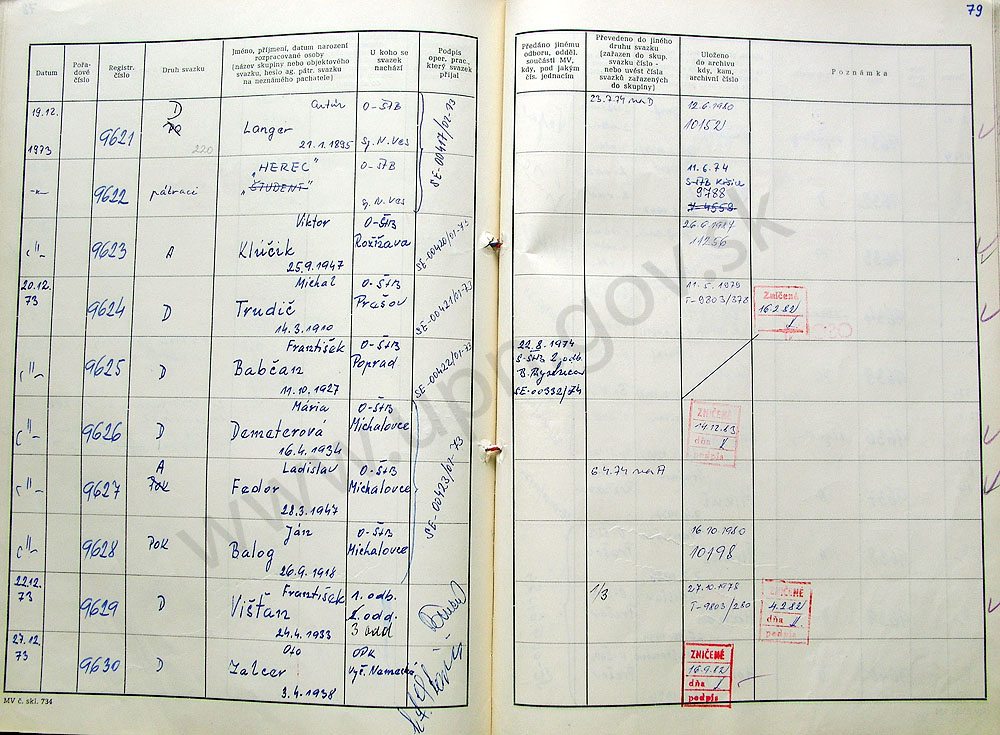 79
Datum
Pořa-
dové
číslo
Registr.
číslo
Druh svazku
Jméno, příjmení, datum narození
rozpracované osoby
(název skupiny nebo objektového
svazku, heslo ag. pátr. svazku
na neznámého pachatele)
U koho se
svazek
nachází
Podpis
oper. prac.,
který svazek
přijal
Předáno jinému
odboru, odděl.
součásti MV,
kdy, pod jakým
čís. jednacím
Převedeno do jiného
druhu svazku
(zařazen do skup.
svazku číslo -
nebo uvést čísla
svazků zařazených
do skupiny)
Uloženo
do archivu
kdy, kam,
archivní číslo
Poznámka
19.12.
1973
9621
D
220
Artúr
Langer
21.1.1895
O-ŠtB
Sp.N.Ves
SE-00417/02-73
23.7.74 na D
12.6.1980
10152
-"-
9622
pátrací
„HEREC"
„ŠTUDENT"
O-ŠtB
Sp.N.Ves
11.6.74
S-ŠtB Košice
9788
V-4558
-"-
9623
A
Viktor
Kľúčik
25.9.1947
O-ŠtB
Rožňava
SE-00420/01-73
26.6.1987
11256
20.12.
73
9624
D
Michal
Trudič
14.3.1910
O-ŠtB
Prešov
SE-00421/01-73
11.5.1979
T-9803/378
Zničené
16.2.82
-"-
9625
D
František
Babčan
11.10.1927
O-ŠtB
Poprad
SE-00422/01-73
22.8.1974
S-ŠtB 2.odb.
B. Bystrica
SE-00332/74
-"-
9626
D
Mária
Demeterová
16.4.1934
O-ŠtB
Michalovce
SE-00423/02-73
ZNIČENÉ
14.12.83
dňa
podpis
-"-
9627
A
POK
Ladislav
Fedor
28.3.1947
O-ŠtB
Michalovce
6.4.74 na A
-"-
9628
POK
Ján
Balog
26.9.1918
O-ŠtB
Michalovce
16.10.1980
10198
22.12.
73
9629
D
František
Višťan
24.4.1933
1. odb.
2. odd.
3 odd
1/3
27.10.1978
T-9803/280
ZNIČENÉ
4.2.82
dňa
podpis
27.12.
73
9630
D
Oto
Zalcer
3.4.1938
OPK
Vyš. Nemecké
ZNIČENÉ
16.9.82
dňa
podpis
MV č. skl. 734
www.upn.gov.sk